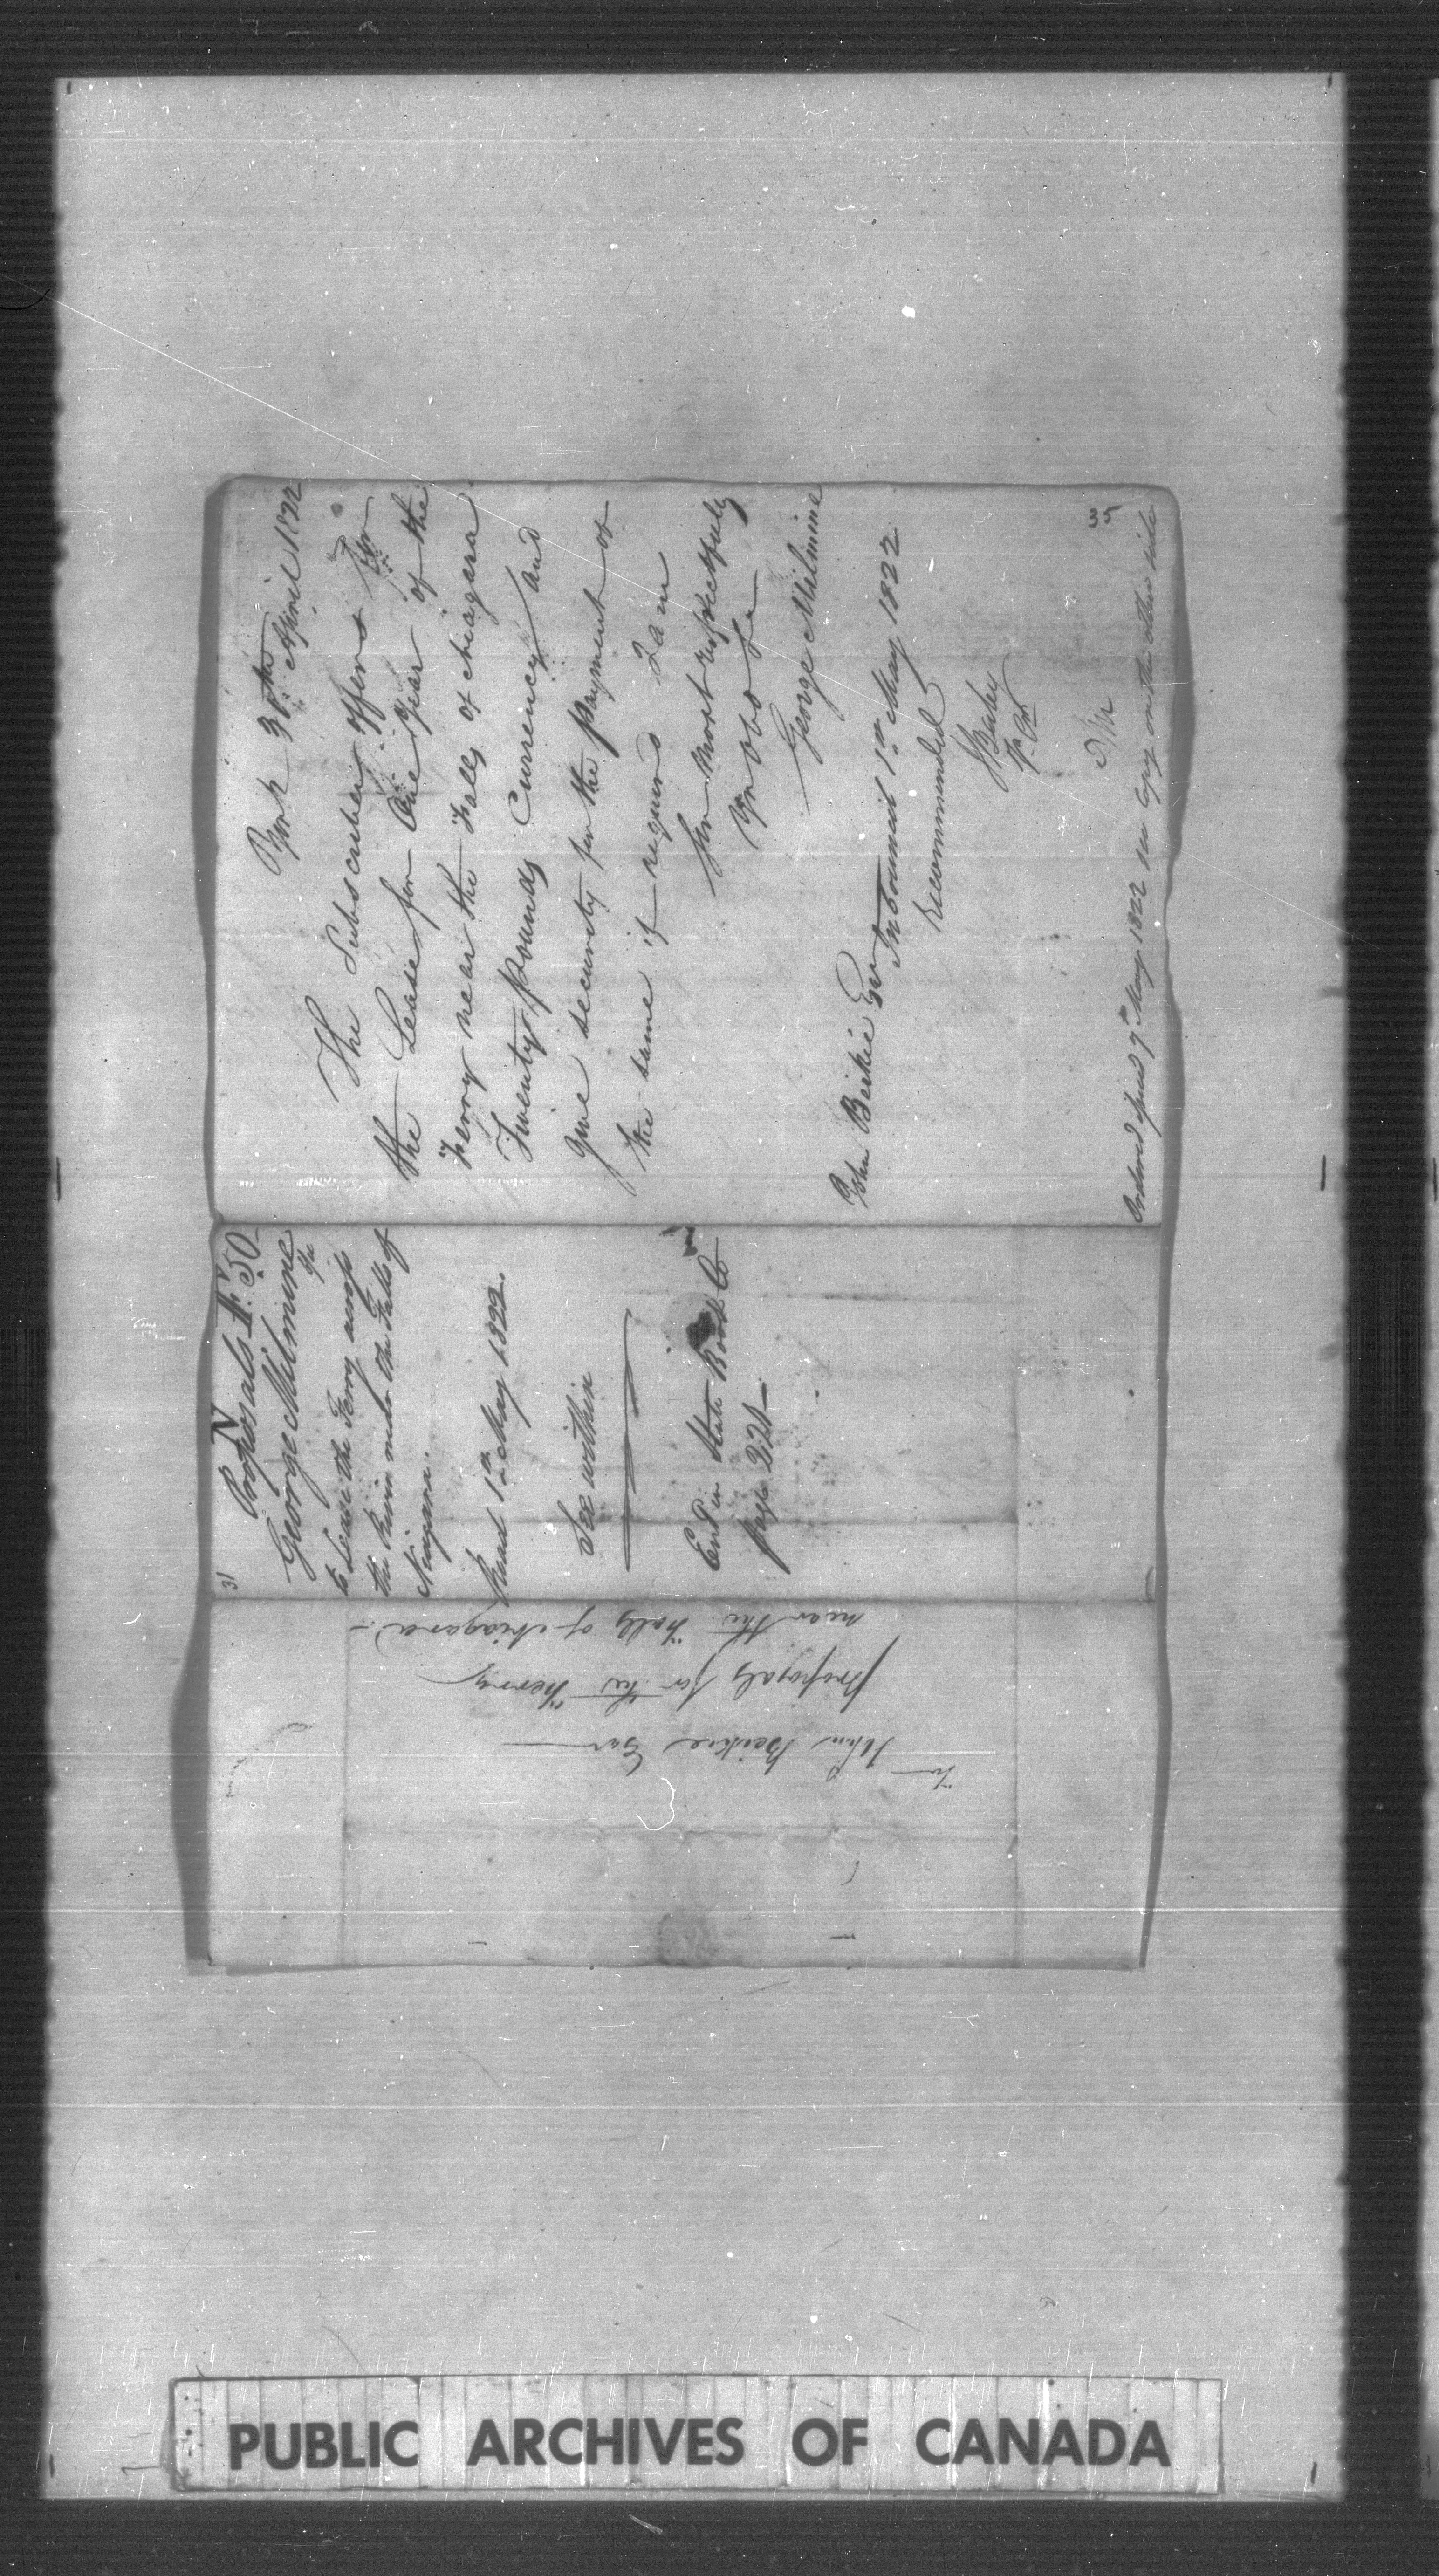 York 30th April 1822
The Subscriber offers for
the Lease for One year of the
Ferry near the Falls of Niagara
Twenty pounds Currency and
give security for the payment of
the same if required I am
Sir Most respectfully
Yr Obt St
George Milmine
John Beikie Esqr
In Council 1st May 1822
Recommended
35
Ordered issued 7th May 1822 see Copy on the other side
31
N
Proposals No 50
George Milmine
to Lease the Ferry across
the River under the Falls of
Niagara.
Read 1st May 1822.
See within
Entd in State Book G
page 221
To
John Beikie Esqr
proposals for the Ferry
near the Falls of Niagara
PUBLIC ARCHIVES OF CANADA